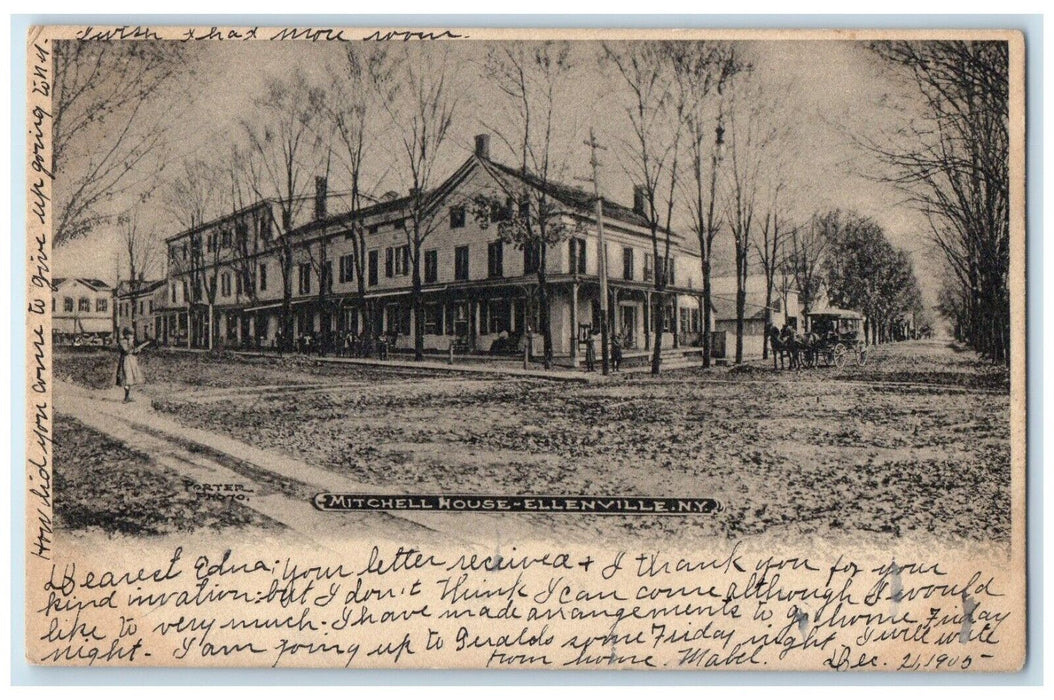 I wish I had more room.
How did you come to give up going to N.Y.
PORTER
PHOTO.
MITCHELL HOUSE-ELLENVILLE.N.Y.
Dearest Edna; Your letter received & I thank you for your
kind invation: but I don't think I can come although I would
like to very much. I have made arrangements to go home Friday
night. I am going up to Geralds some Friday night. I will write
from home. Mabel. Dec. 21, 1905-